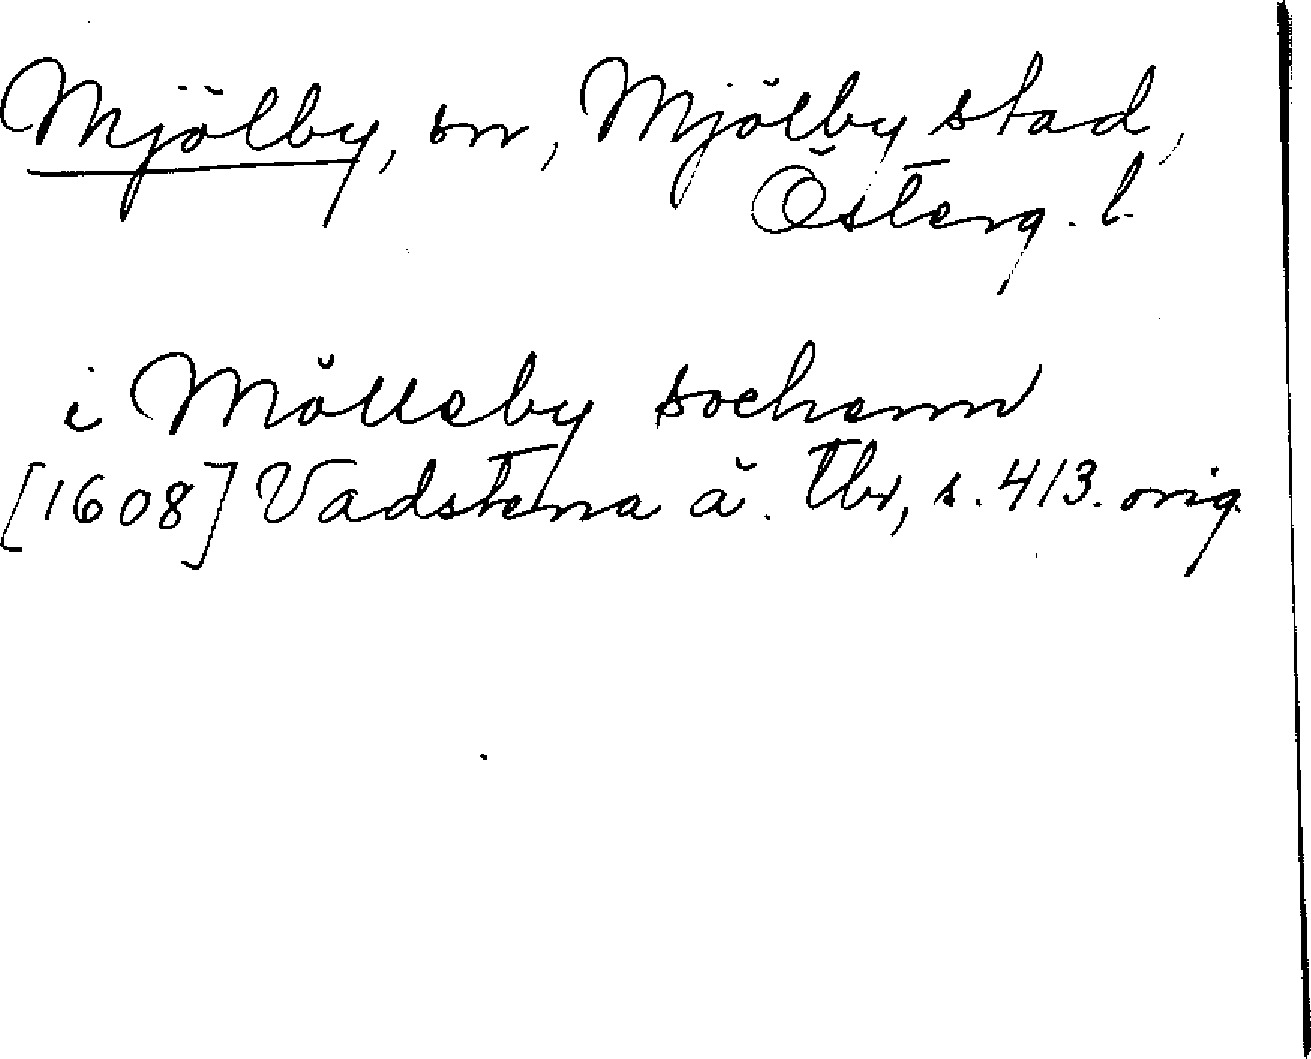 Mjölby, sn, Mjölby stad,
Österg. l.
i Mölleby sochenn
[1608] Vadstena ä. Tbr, s. 413. orig.